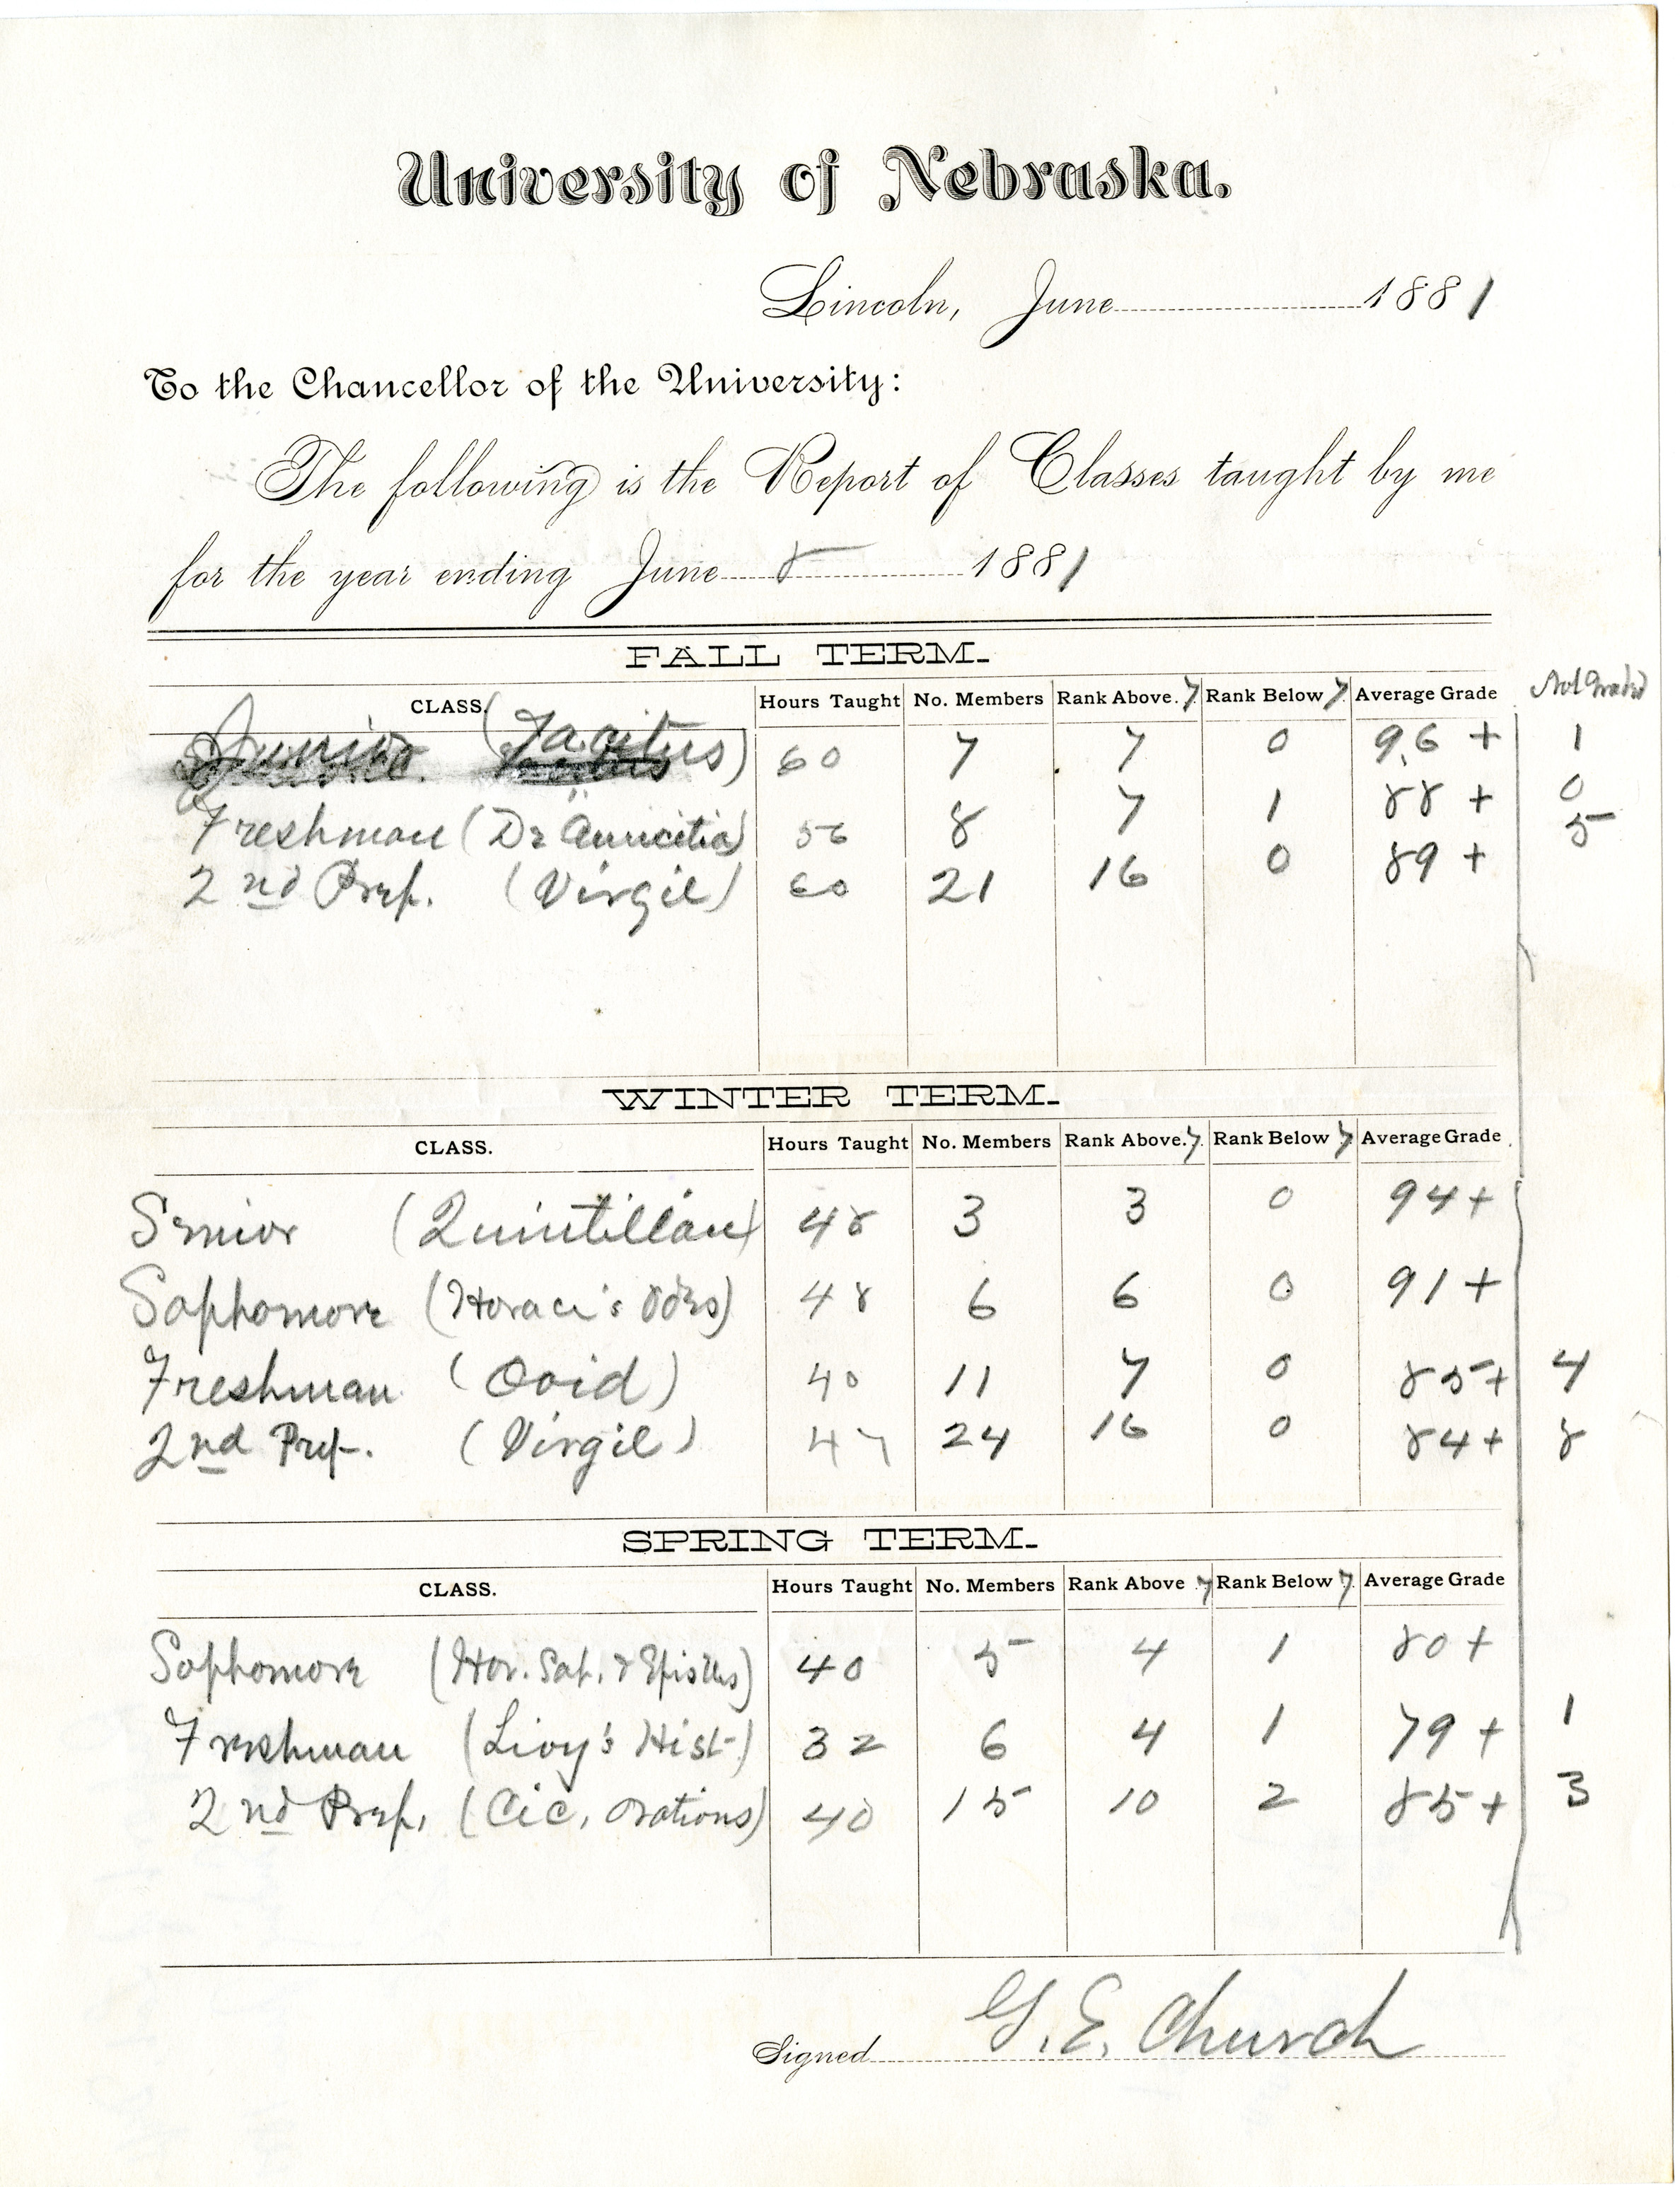 University of Nebraska.
Lincoln, June 1881
To the Chancellor of the University:
The following is the Report of Classes taught by me
for the year ending June 8 1881
FALL TERM.
CLASS. Hours Taught No. Members Rank Above 7. Rank Below 7. Average Grade Not Graded
Junior (Tacitus) 60 7 7 0 96 + 1
Freshman (De Amicitia) 56 8 7 1 88 + 0
2nd Prep. (Virgil) 60 21 16 0 89 + 5
WINTER TERM.
CLASS. Hours Taught No. Members Rank Above 7. Rank Below 7. Average Grade
Senior (Quintillian) 48 3 3 0 94 +
Sophomore (Horace's Odes) 48 6 6 0 91 +
Freshman (Ovid) 40 11 7 0 85 + 4
2nd Prep. (Virgil) 47 24 16 0 84 + 8
SPRING TERM.
CLASS. Hours Taught No. Members Rank Above 7. Rank Below 7. Average Grade
Sophomore (Hor. Sat. & Epistles) 40 5 4 1 80 +
Freshman (Livy's Hist.) 32 6 4 1 79 + 1
2nd Prep. (Cic. Orations) 40 15 10 2 85 + 3
Signed G. E. Church